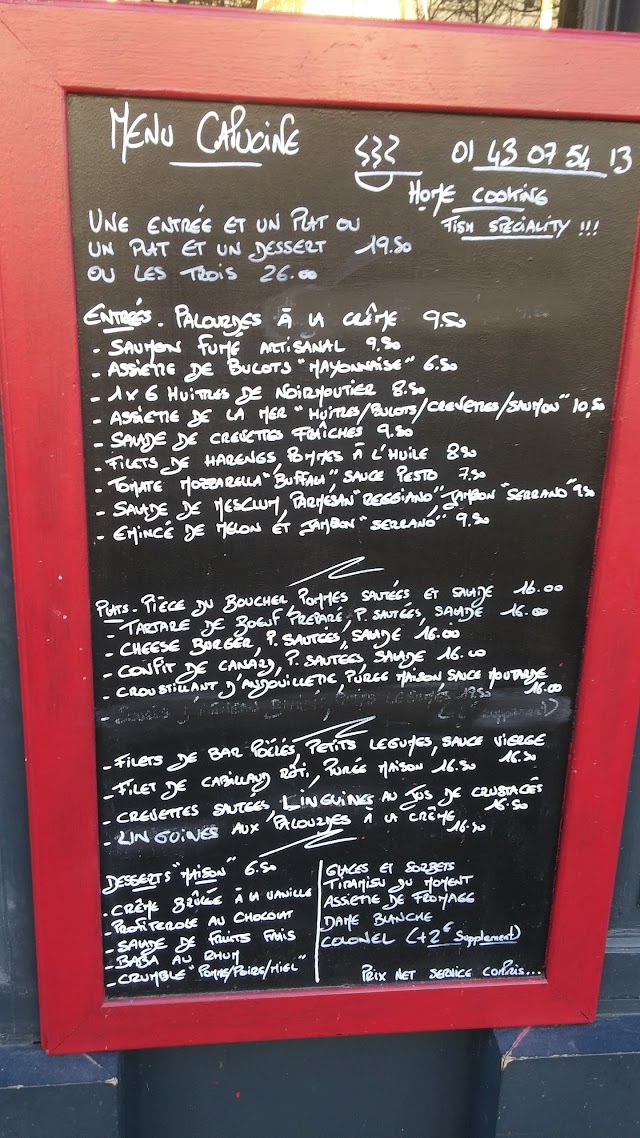 MENU CAPUCINE
01 43 07 54 13
HOME COOKING
FISH SPECIALITY !!!
UNE ENTRÉE ET UN PLAT OU
UN PLAT ET UN DESSERT 19.50
OU LES TROIS 26.00
ENTRÉES. PALOURDES À LA CRÊME 9.50
- SAUMON FUMÉ ARTISANAL 9.50
- ASSIETTE DE BULOTS "MAYONNAISE" 6.50
- 1 X 6 HUITRES DE NOIRMOUTIER 8.50
- ASSIETTE DE LA MER "HUITRES/BULOTS/CREVETTES/SAUMON" 10,50
- SALADE DE CREVETTES FRAÎCHES 9.50
- FILETS DE HARENGS, POMMES À L'HUILE 8.50
- TOMATE MOZZARELLA "BUFFALA", SAUCE PESTO 7.50
- SALADE DE MESCLUM, PARMESAN "REGGIANO" JAMBON "SERRANO" 9.50
- EMINCÉ DE MELON ET JAMBON "SERRANO" 9.50
PLATS - PIÈCE DU BOUCHER, POMMES SAUTÉES ET SALADE 16.00
- TARTARE DE BOEUF PRÉPARÉ, P. SAUTÉES, SALADE 16.00
- CHEESE BURGER, P. SAUTÉES, SALADE 16.00
- CONFIT DE CANARD, P. SAUTÉES, SALADE 16.00
- CROUSTILLANT D'ANDOUILLETTE PURÉE MAISON SAUCE MOUTARDE 16.00
- FILETS DE BAR POÊLÉS, PETITS LEGUMES, SAUCE VIERGE 16.50
- FILET DE CABILLAUD RÔTI, PURÉE MAISON 16.50
- CREVETTES SAUTEES, LINGUINES AU JUS DE CRUSTACÉS 16.50
- LINGUINES AUX PALOURDES À LA CRÊME 16.50
DESSERTS "MAISON" 6.50
- CRÊME BRÛLÉE À LA VANILLE
- PROFITEROLE AU CHOCOLAT
- SALADE DE FRUITS FRAIS
- BABA AU RHUM
- CRUMBLE "POMME/POIRE/MIEL"
GLACES ET SORBETS
TIRAMISU DU MOMENT
ASSIETTE DE FROMAGE
DAME BLANCHE
COLONEL (+2€ Supplement)
PRIX NET SERVICE COMPRIS...